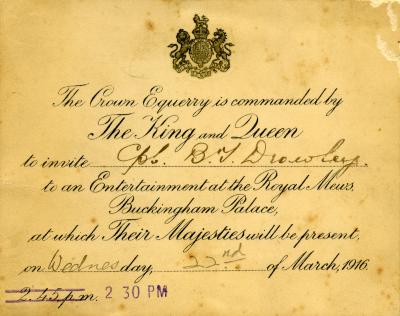 The Crown Equerry is commanded by
The King and Queen
to invite Cpl. B. T. Drowley.
to an Entertainment at the Royal Mews,
Buckingham Palace,
at which Their Majesties will be present,
on Wednesday, 22nd of March, 1916.
2.45 p.m. 2 30 PM